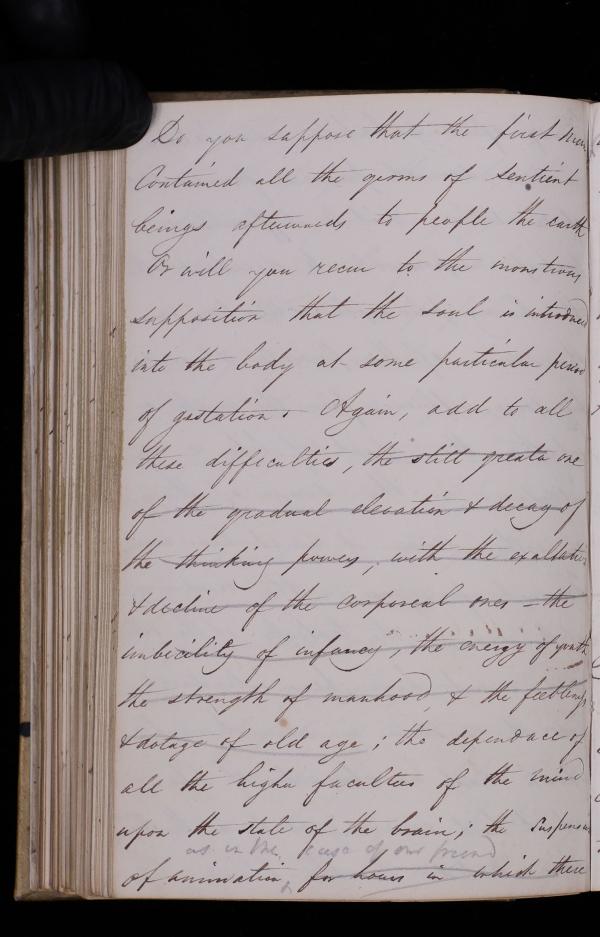 Do you suppose that the first man
Contained all the germs of sentient
beings afterwards to people the earth
Or will you recur to the monstrous
supposition that the soul is introduced
into the body at some particular period
of gestation. Again, add to all
these difficulties, the still greater one
of the gradual elevation & decay of
the thinking powers, with the exaltation
& decline of the corporeal ones – the
imbecility of infancy, the energy of youth
the strength of manhood, & the feebleness
& dotage of old age; the dependance of
all the higher faculties of the mind
upon the state of the brain; the suspension
as in the case of our friend
of animation, for hours in which there